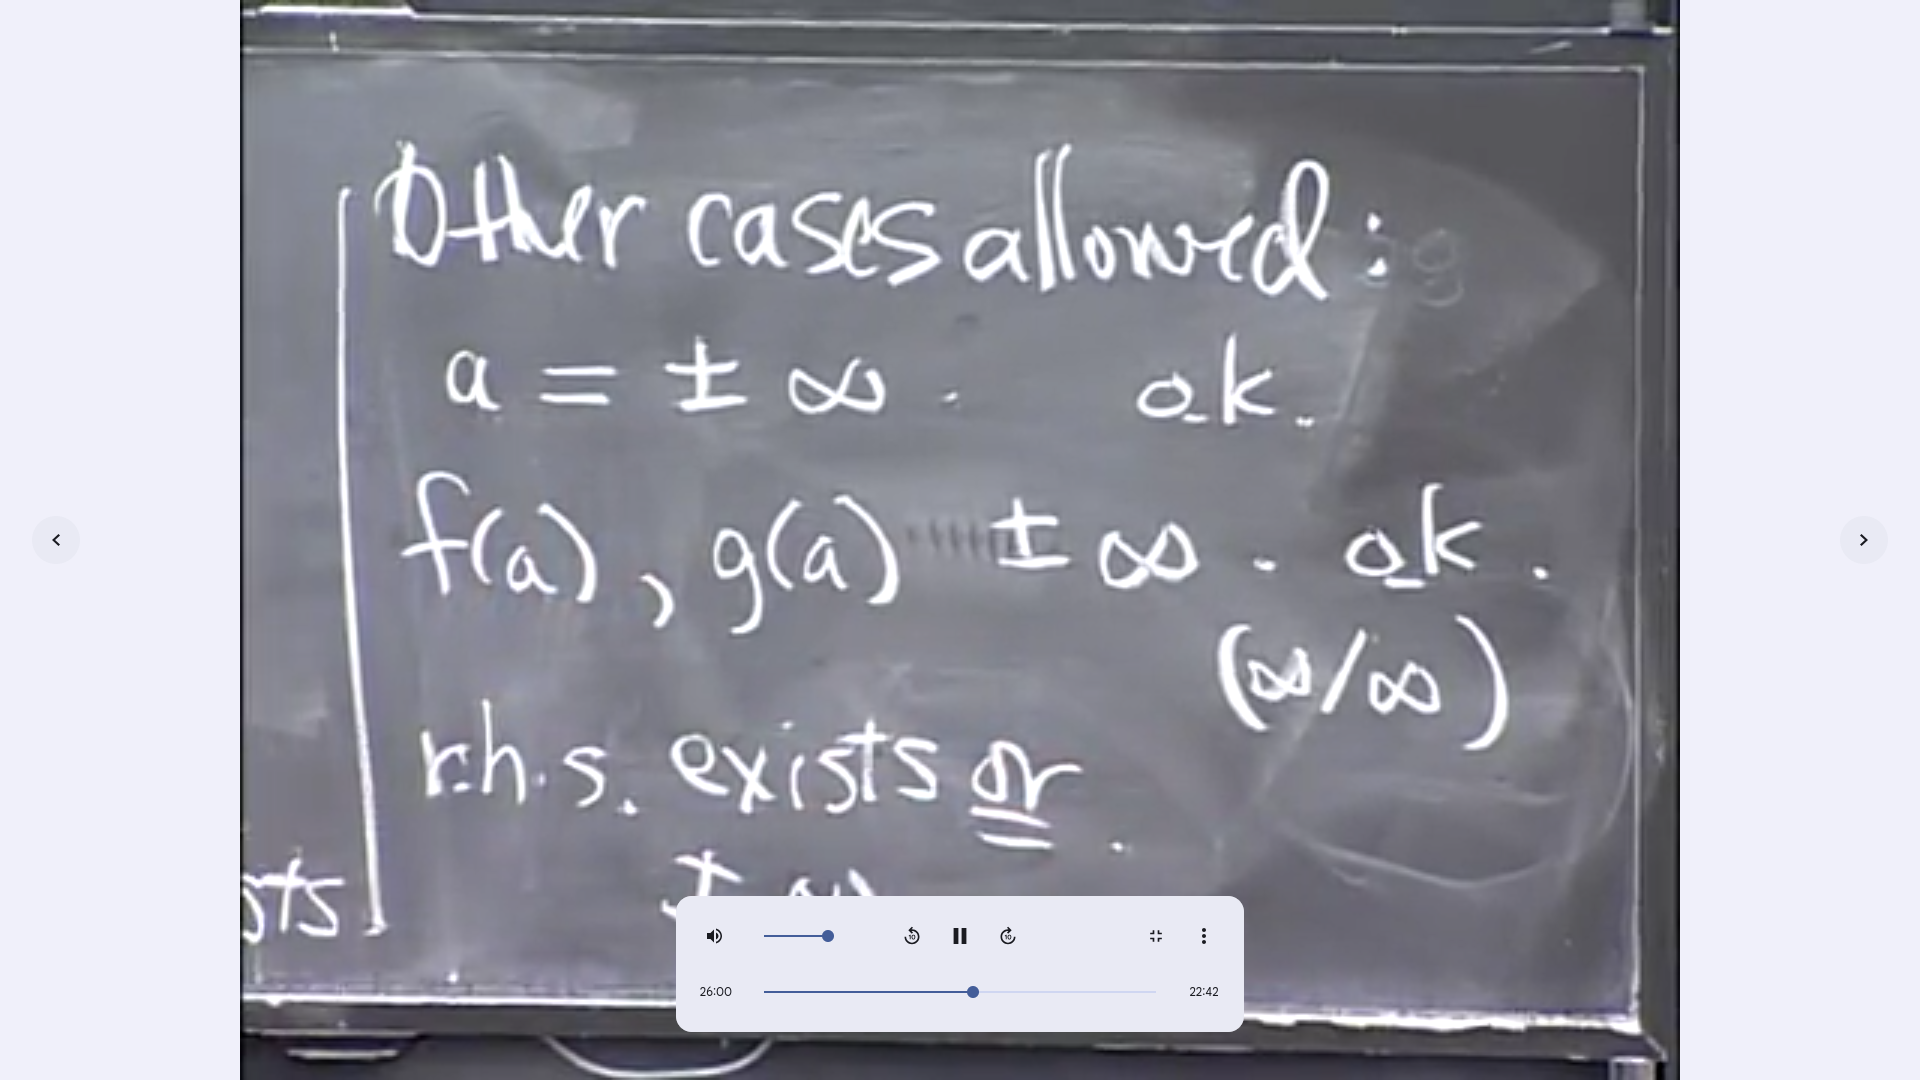 Other cases allowed:
a = ± ∞ . ok.
f(a), g(a) ± ∞ . ok.
(∞/∞)
r.h.s. exists or
± ∞
sts
26:00
22:42